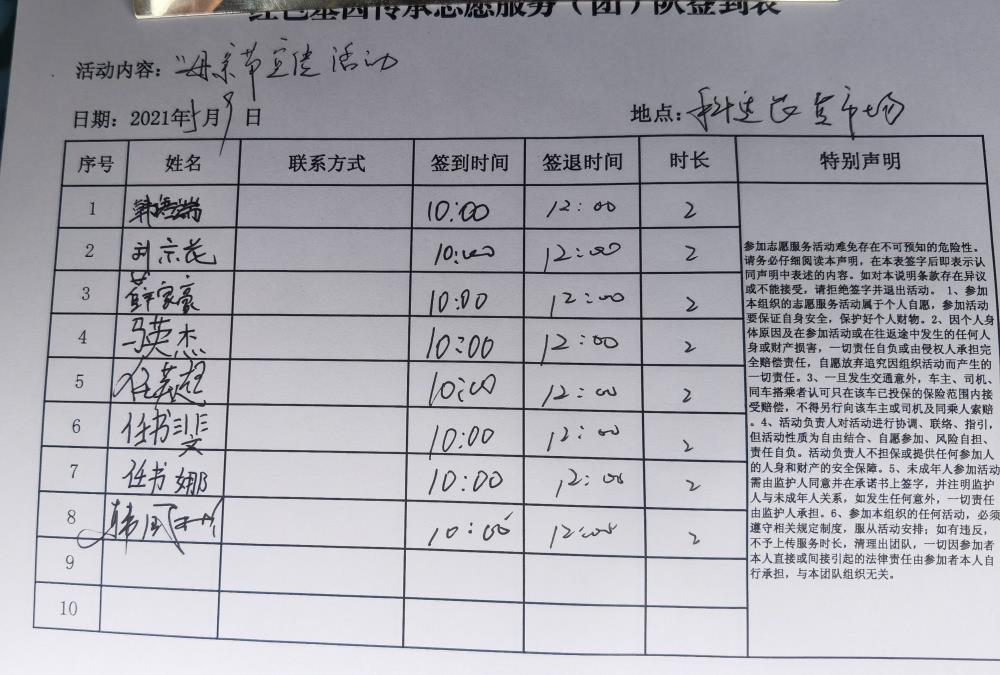 红色基因传承志愿服务（团）队签到表
活动内容：母亲节宣传活动
日期：2021年5月9日 地点：科达农贸市场
序号 姓名 联系方式 签到时间 签退时间 时长 特别声明
1 10:00 12:00 2
2 刘京花 10:00 12:00 2
3 薛家豪 10:00 12:00 2
4 马英杰 10:00 12:00 2
5 任英超 10:00 12:00 2
6 任书斐 10:00 12:00 2
7 任书娜 10:00 12:00 2
8 韩凤 10:00 12:00 2
9
10
参加志愿服务活动难免存在不可预知的危险性。
请务必仔细阅读本声明，在本表签字后即表示认
同声明中表述的内容。如对本说明条款存在异议
或不能接受，请拒绝签字并退出活动。 1、参加
本组织的志愿服务活动属于个人自愿，参加活动
要保证自身安全，保护好个人财物。2、因个人身
体原因及在参加活动或在往返途中发生的任何人
身或财产损害，一切责任自负或由侵权人承担完
全赔偿责任，自愿放弃追究因组织活动而产生的
一切责任。3、一旦发生交通意外，车主、司机、
同车搭乘者认可只在该车已投保的保险范围内接
受赔偿，不得另行向该车主或司机及同乘人索赔
。4、活动负责人对活动进行协调、联络、指引，
但活动性质为自由结合、自愿参加、风险自担、
责任自负。活动负责人不担保或提供任何参加人
的人身和财产的安全保障。5、未成年人参加活动
需由监护人同意并在承诺书上签字，并注明监护
人与未成年人关系，如发生任何意外，一切责任
由监护人承担。6、参加本组织的任何活动，必须
遵守相关规定制度，服从活动安排；如有违反，
不予上传服务时长，清理出团队，一切因参加者
本人直接或间接引起的法律责任由参加者本人自
行承担，与本团队组织无关。